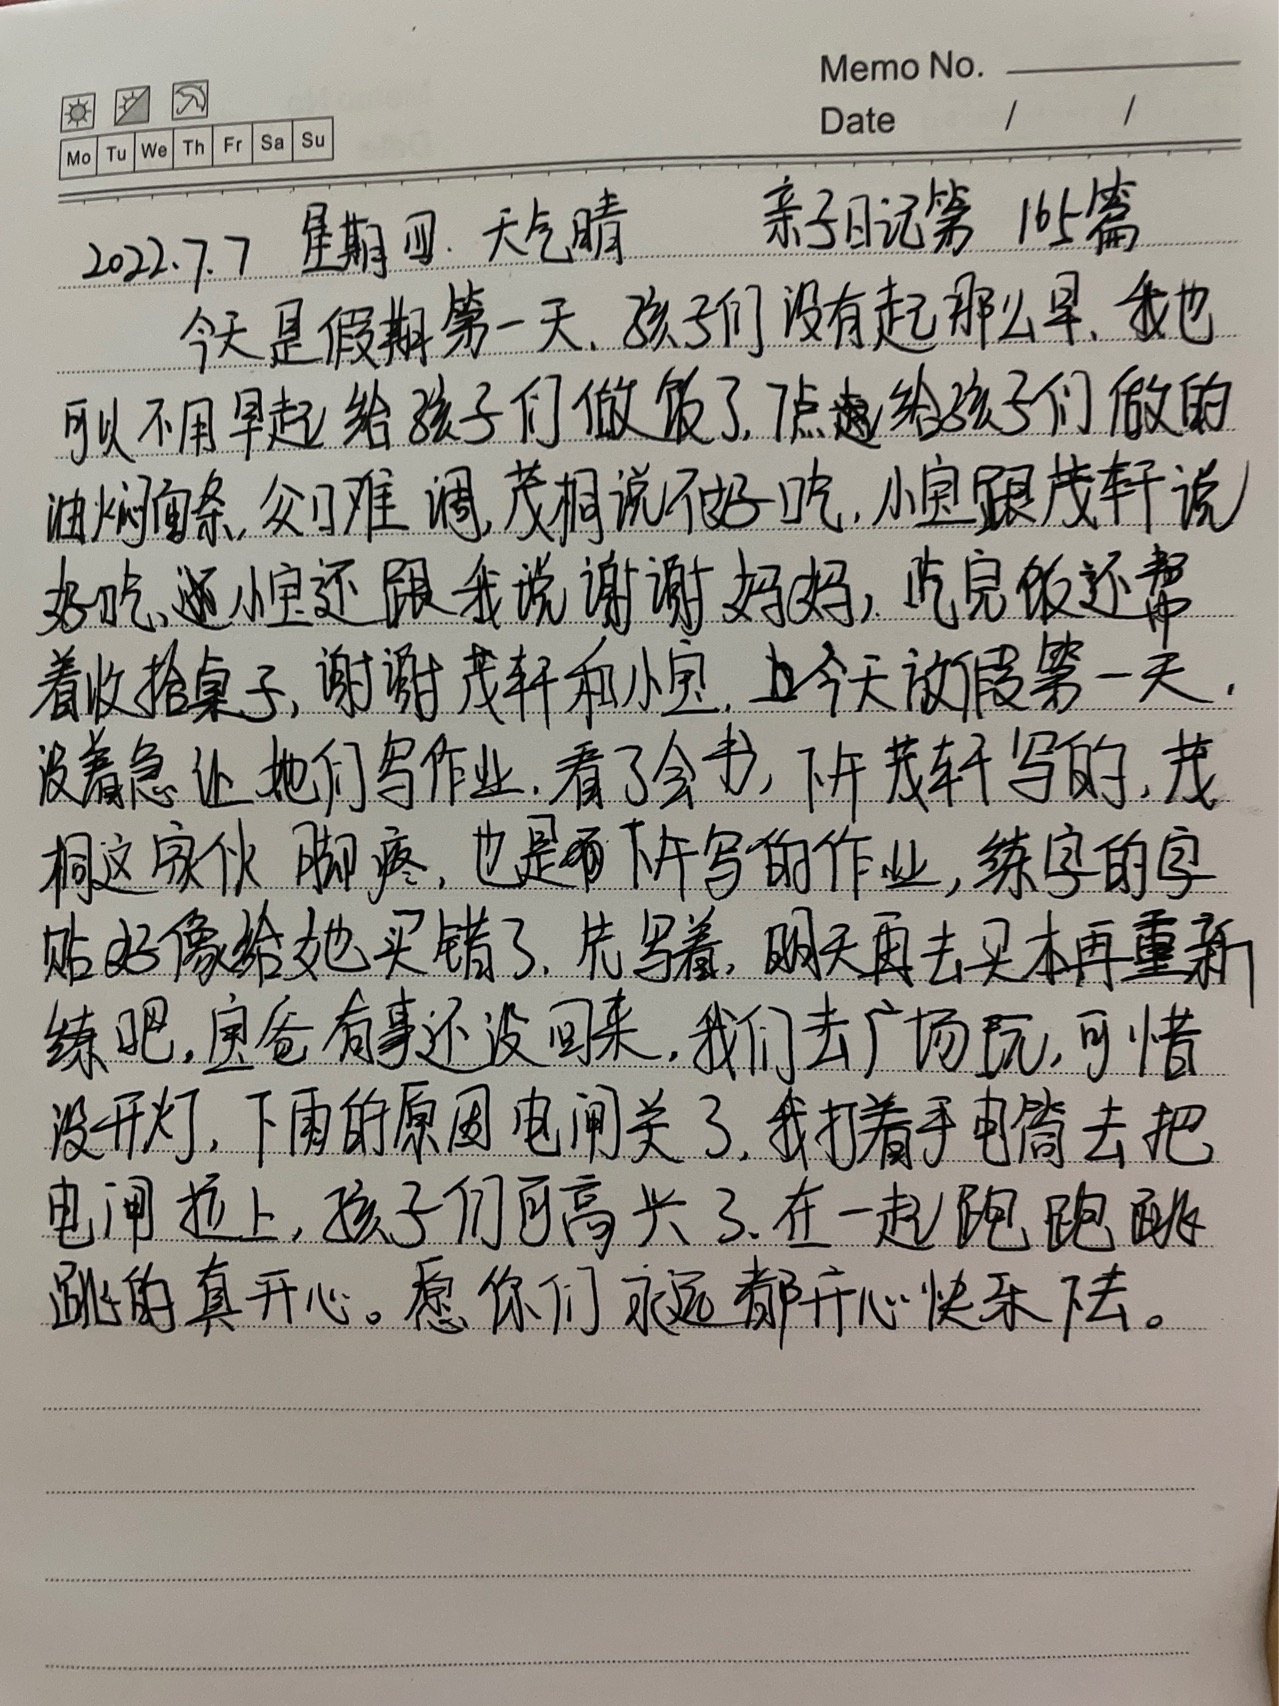 Memo No.
Date / /
Mo Tu We Th Fr Sa Su
2022.7.7 星期四. 天气晴 亲子日记第 165篇
今天是假期第一天、孩子们没有起那么早、我也
可以不用早起给孩子们做饭了,7点起给孩子们做的
油焖面条,众口难调,茂桐说不好吃,小宝跟茂轩说
好吃、小宝还跟我说谢谢妈妈,吃完饭还帮
着收拾桌子,谢谢茂轩和小宝.今天放假第一天.
没着急让她们写作业.看了会书,下午茂轩写的,茂
桐这家伙脚疼,也是下午写的作业,练字的字
贴好像给她买错了.先写着,明天再去买本再重新
练吧,宝爸有事还没回来,我们去广场玩,可惜
没开灯,下雨的原因电闸关了.我打着手电筒去把
电闸拉上,孩子们可高兴了、在一起跑跑跳
跳的真开心。愿你们永远都开心快乐下去。